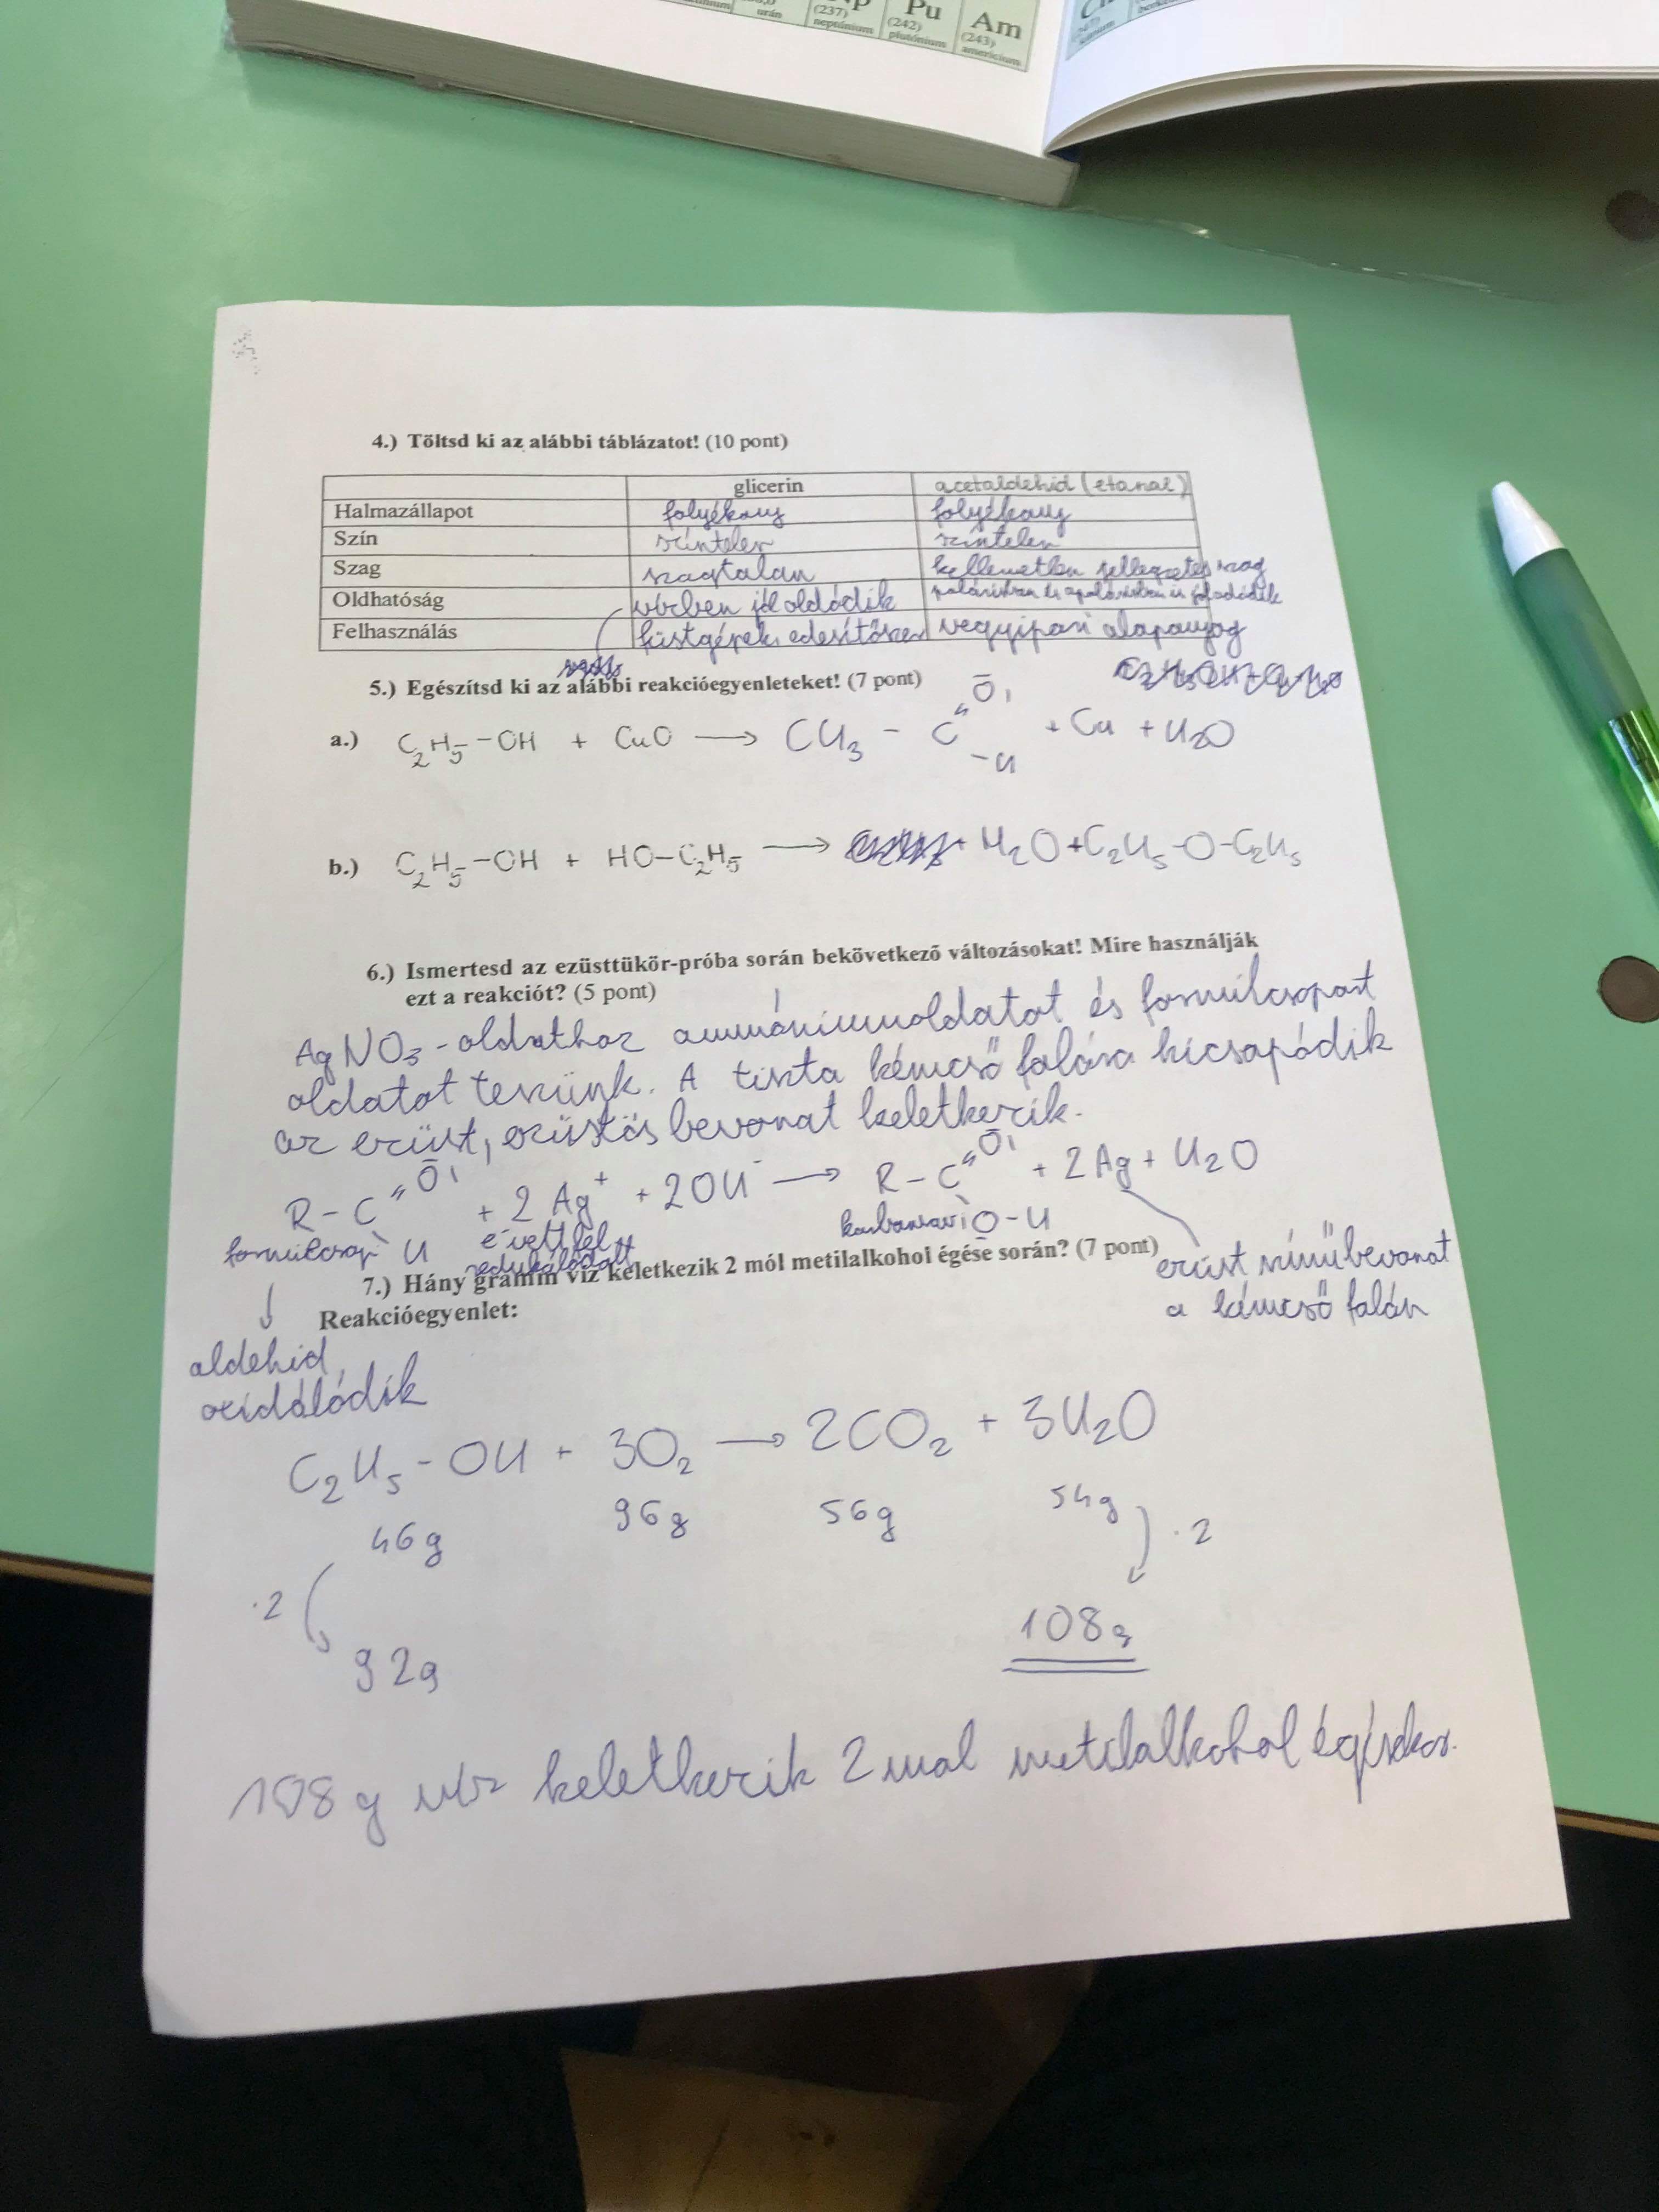 urán
(237)
neptúnium
Pu
(242)
plutónium
Am
(243)
americium
4.) Töltsd ki az alábbi táblázatot! (10 pont)
glicerin acetaldehid (etanal)
Halmazállapot folyékony folyékony
Szín színtelen színtelen
Szag szagtalan kellemetlen jellegzetes szag
Oldhatóság vízben jól oldódik polárisban és apolárisban is jól oldódik
Felhasználás füstgépek, édesítőszer vegyipari alapanyag
5.) Egészítsd ki az alábbi reakcióegyenleteket! (7 pont)
a.) C2H5-OH + CuO → CH3 - C =O -H + Cu + H2O
b.) C2H5-OH + HO-C2H5 → H2O + C2H5-O-C2H5
6.) Ismertesd az ezüsttükör-próba során bekövetkező változásokat! Mire használják
ezt a reakciót? (5 pont)
AgNO3-oldathoz ammóniumoldatot és formilcsoport
oldatot teszünk. A tiszta kémcső falára kicsapódik
az ezüst, ezüstös bevonat keletkezik.
R-C =O H + 2Ag+ + 2OH- → R-C =O O-H + 2Ag + H2O
formilcsop
redukálódott
ezüst színű bevonat
a kémcső falán
7.) Hány gramm víz keletkezik 2 mól metilalkohol égése során? (7 pont)
Reakcióegyenlet:
aldehid
oxidálódik
C2H5-OH + 3O2 → 2CO2 + 3H2O
46g 96g 56g 54g
·2 ·2
92g 108g
108 g víz keletkezik 2 mol metilalkohol égésekor.